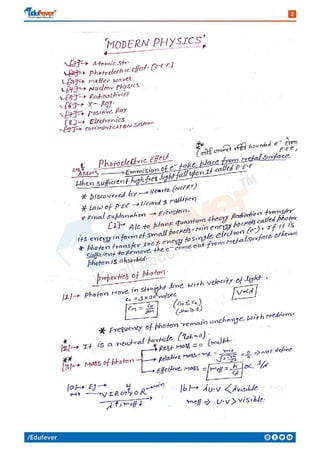 Edufever
2
'MODERN PHYSICS'
[1] → Atomic str.
[2] → Photoelectric effect. [P.E.E]
[3] → matter waves
[4] → Nuclear Physics
[5] → Radioactivity
[6] → X-Ray.
[7] → Positive Ray
[8] → Electronics
[9] → communication system
Photoelectric Effect
→ Emmision of e⁻ take place from metal surface
when sufficient high freq light fall upon it called P.E.E
* Discovered by → Heartz
* Law of P.E.E → Linard & milliken
* Final explanation → Einstein.
[1] → A/c to plank quantum theory Radiation transfer
its energy in form of small packets. min energy packet called photon
* photon transfer its energy to single electron (e⁻). If it is
sufficient to remove the e⁻ come out from metal surface otherwise
photon is absorbed.
Properties of photon:
[1] → Photon move in straight line with velocity of light.
C₀ = 3×10⁸ m/sec
V∝λ
* Frequency of photon remain unchange with medium.
[2] → It is a neutral particle (qph=0).
[3] → Mass of photon → Rest mass = 0 (m₀)ph.
→ Relative mass = → not define
→ effective mass = m = h
|a| → E
max VIBGYOR min
λ↑, meff↓
|b| → λU.V < λvisible
meff ⇒ U.V > visible.
/Edufever